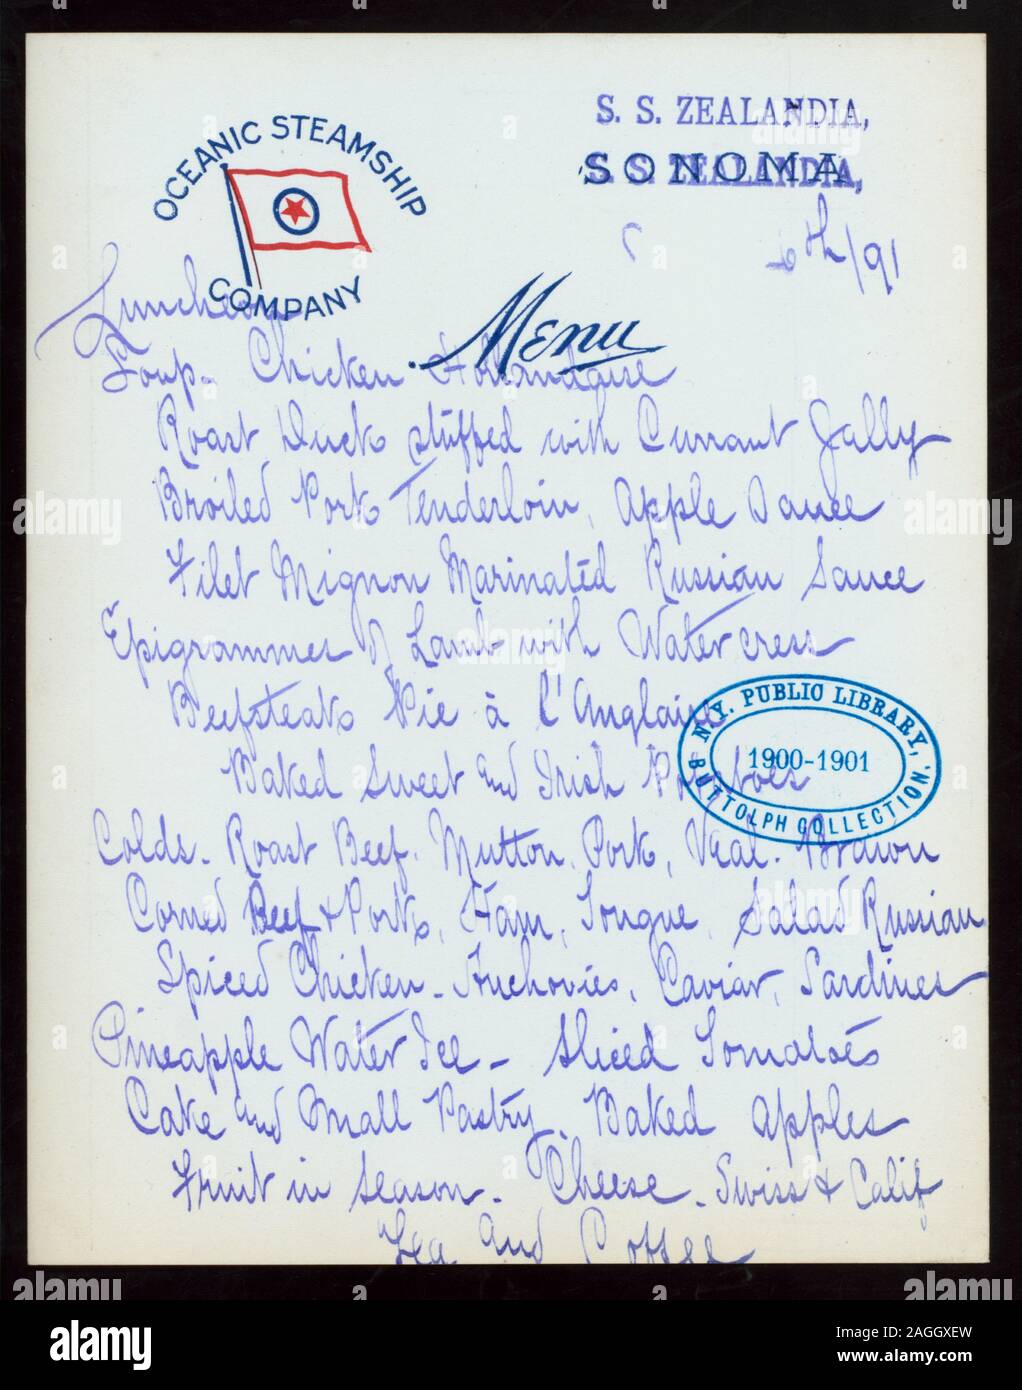 OCEANIC STEAMSHIP
COMPANY
S. S. ZEALANDIA,
SONOMA
S. S. ZEALANDIA,
6th/91
Luncheon
Menu
Soup. Chicken Hollandaise
Roast Duck stuffed with Currant Jelly
Broiled Pork Tenderloin, Apple Sauce
Filet Mignon Marinated Russian Sauce
Epigrammes of Lamb with Watercress
Beefsteak Pie à l'Anglaise
Baked Sweet and Irish Potatoes
Colds. Roast Beef. Mutton, Pork, Veal. Brawn
Corned Beef & Pork, Ham, Tongue, Salad Russian
Spiced Chicken - Anchovies, Caviar, Sardines
Pineapple Water Ice - Sliced Tomatoes
Cake and Small Pastry. Baked Apples
Fruit in season. Cheese - Swiss & Calif
Tea and Coffee
N.Y. PUBLIC LIBRARY,
1900-1901
BUTTOLPH COLLECTION.
alamy
Image ID: 2AGGXEW
www.alamy.com